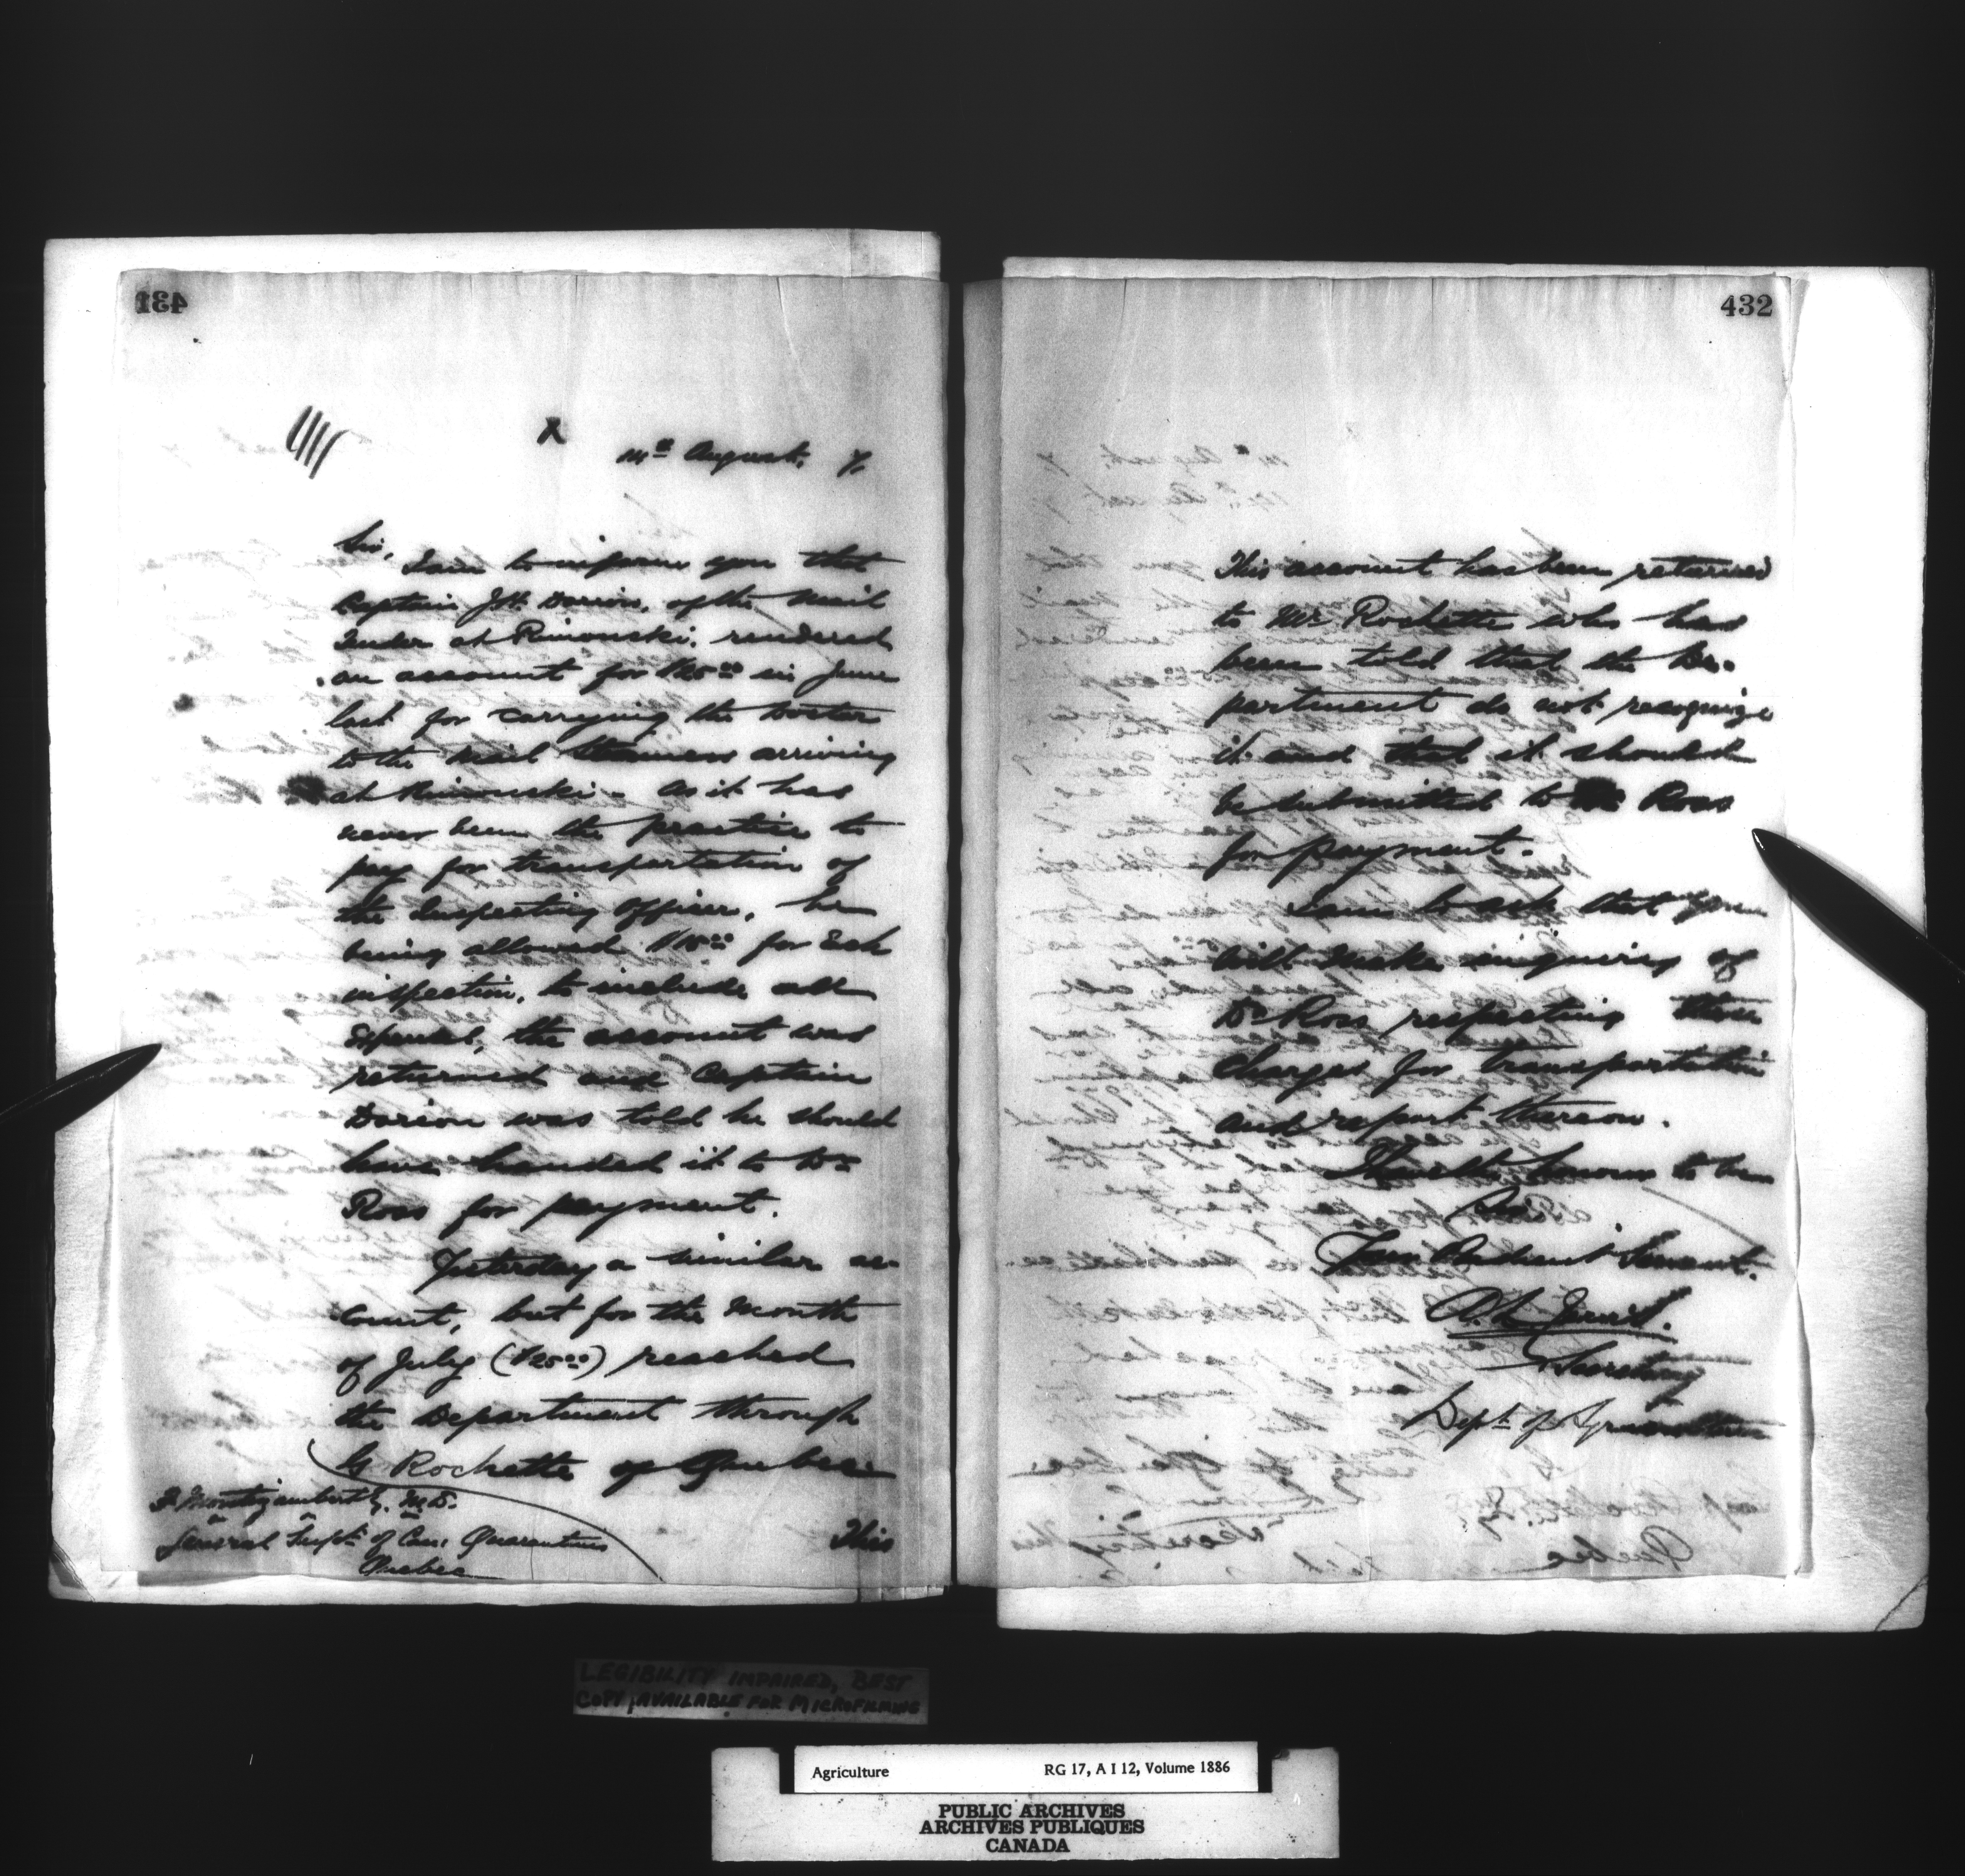 431
14th August, 7.
Sir,
I am to inform you that
Captain J.H. Dorion, of the Mail
Tender at Rimouski, rendered
an account for $25.00 in June
last for carrying the Doctor
to the Mail Steamers arriving
at Rimouski. As it has
never been the practice to
pay for transportation of
the Inspecting Officer, he
being allowed $15.00 for Each
inspection, to include all
Expenses, the account was
returned and Captain
Dorion was told he should
have handed it to Dr
Ross for payment.
Yesterday a similar ac-
count, but for the Month
of July ($25.00) reached
the Department through
G Rochette of Quebec
F. Montizambert Esq. M.D.
General Supt of Can. Quarantines
Quebec
This
432
This account has been returned
to Mr Rochette who has
been told that the De-
partment do not recognize
it and that it should
be submitted to Dr Ross
for payment.
I am to ask that you
will make inquiry of
Dr Ross respecting these
charges for transportation
and report thereon.
I have the honour to be
Sir
Your Obedient Servant.
Secretary
Dept of Agriculture
LEGIBILITY IMPAIRED, BEST
COPY AVAILABLE FOR MICROFILMING
Agriculture RG 17, A I 12, Volume 1886
PUBLIC ARCHIVES
ARCHIVES PUBLIQUES
CANADA